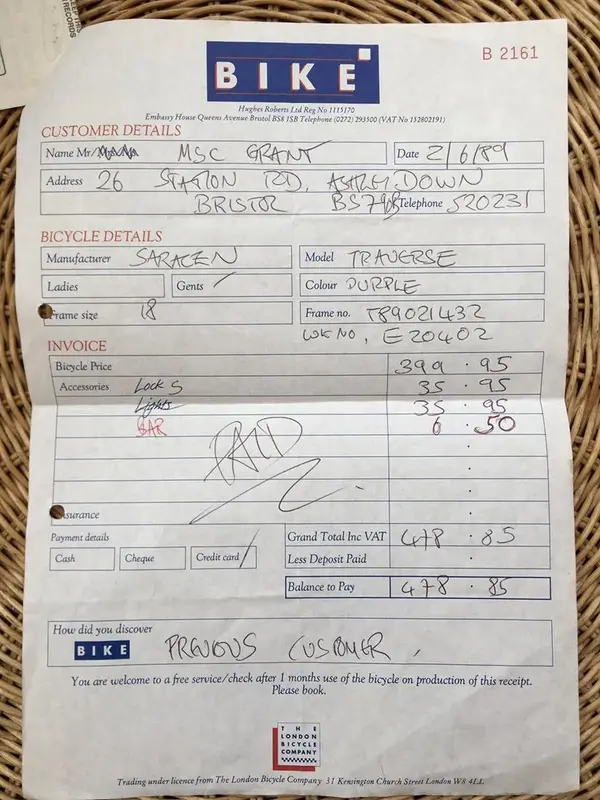 KEEP THIS
RECORDS
B 2161
BIKE
Hughes Roberts Ltd Reg No 1115170
Embassy House Queens Avenue Bristol BS8 1SB Telephone (0272) 293500 (VAT No 152802191)
CUSTOMER DETAILS
Name Mr/ MSC GRANT Date 2/6/89
Address 26 STATION RD, ASHLEY DOWN
BRISTOL Telephone 520231
BICYCLE DETAILS
Manufacturer SARACEN Model TRAVERSE
Ladies Gents / Colour PURPLE
Frame size 18 Frame no. T89021432
WK NO, E20402
INVOICE
Bicycle Price 399 . 95
Accessories Lock S 35 . 95
Lights 35 . 95
BAR 6 . 50
PAID
Insurance
Payment details Grand Total Inc VAT 478 . 85
Cash Cheque Credit card / Less Deposit Paid
Balance to Pay 478 . 85
How did you discover
BIKE PREVIOUS CUSTOMER .
You are welcome to a free service/check after 1 months use of the bicycle on production of this receipt.
Please book.
THE
LONDON
BICYCLE
COMPANY
Trading under licence from The London Bicycle Company 31 Kensington Church Street London W8 4LL